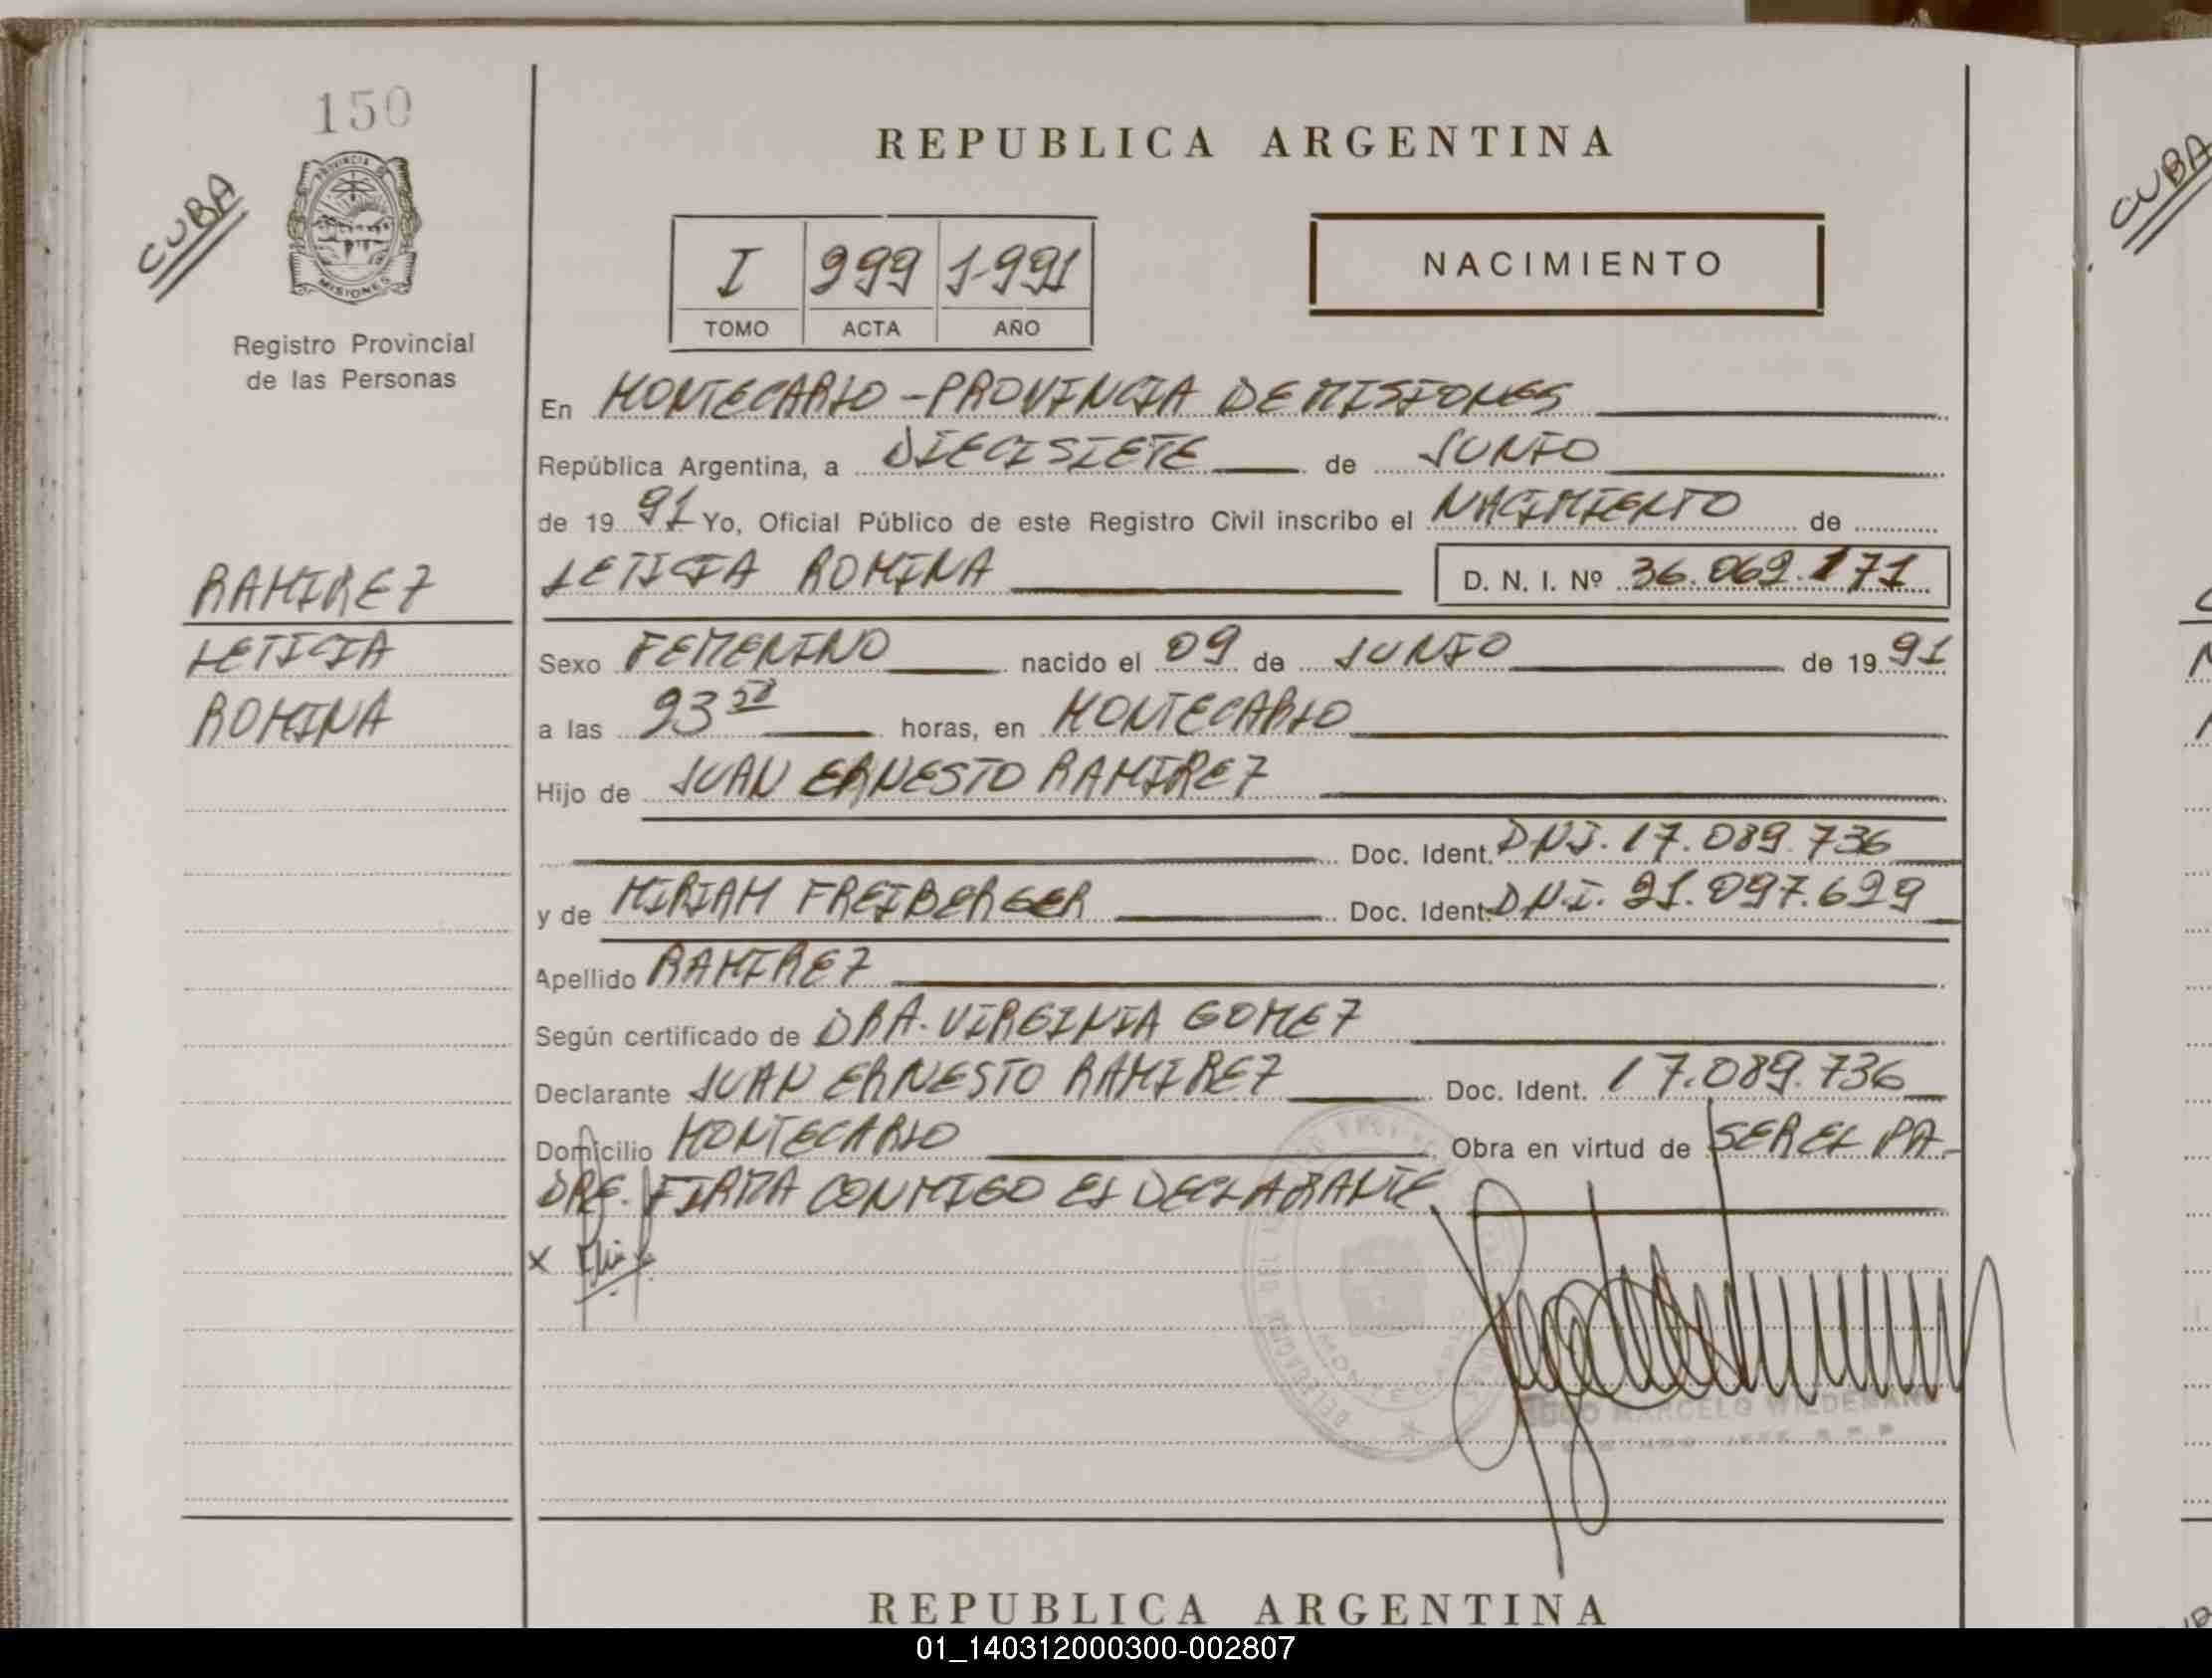 150
CUBA
PROVINCIA DE
MISIONES
Registro Provincial
de las Personas
RAMIREZ
LETICIA
ROMINA
REPUBLICA ARGENTINA
I 299 1.991
TOMO ACTA AÑO
NACIMIENTO
En MONTECARLO - PROVINCIA DE MISIONES
República Argentina, a DIECISIETE de JUNIO
de 19 91 Yo, Oficial Público de este Registro Civil inscribo el NACIMIENTO de
LETICIA ROMINA D. N. I. Nº 36.062.171
Sexo FEMENINO nacido el 09 de JUNIO de 19 91
a las horas, en MONTECARLO
Hijo de JUAN ERNESTO RAMIREZ
Doc. Ident. DNI. 17.089.736
y de MIRIAM FREIBERGER Doc. Ident. D.N.I. 21.097.629
Apellido RAMIREZ
Según certificado de DRA. VIRGINIA GOMEZ
Declarante JUAN ERNESTO RAMIREZ Doc. Ident. 17.089.736
Domicilio MONTECARLO Obra en virtud de SER EL PA-
DRE. FIRMA CONMIGO EL DECLARANTE
X
HUGO MARCELO WIEDEMANN
REPUBLICA ARGENTINA
CUBA
01_140312000300-002807